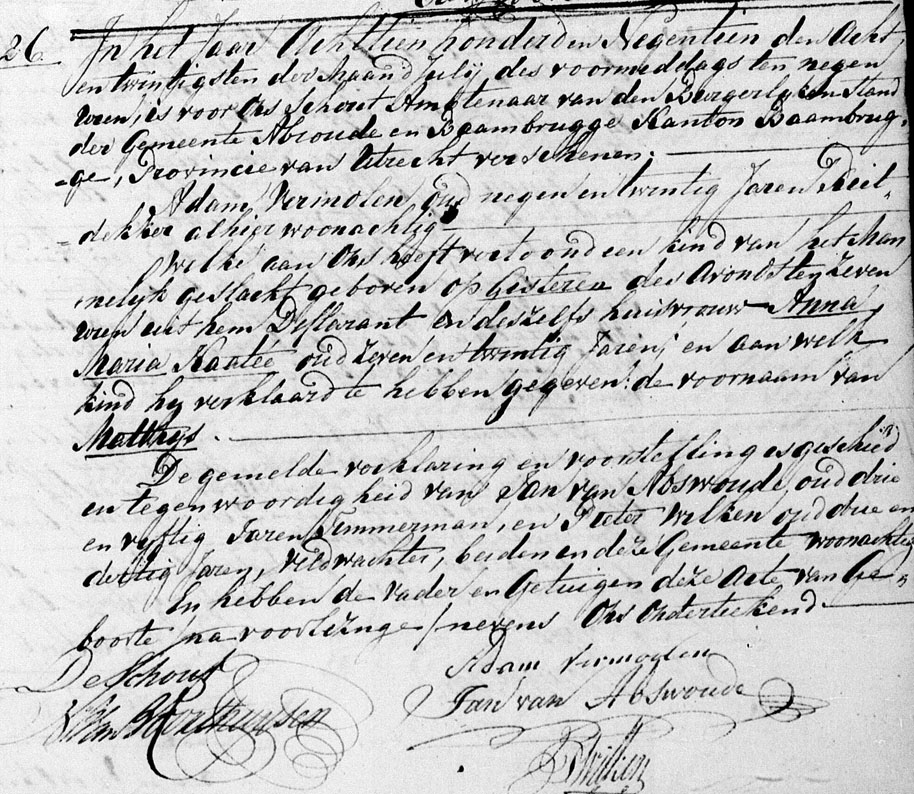 26.
In het Jaar Achttien honderd en Negentien den Acht
en twintigsten der Maand Julij, des voormiddags ten negen
uren, is voor Ons Schout Amptenaar van den Burgerlyken Stand
der Gemeente Abcoude en Baambrugge Kanton Baambrug-
-ge, Provincie van Utrecht verschenen.
Adam Vermolen, oud negen en twintig Jaren Riet-
-dekker alhier woonachtig
Welke aan Ons heeft vertoond een kind van het Man
nelyk geslacht geboren op Gisteren des Avonds ten zeven
uren uit hem Deklarant en deszelfs huisvrouw Anna
Maria Kaatée oud zeven en twintig Jaren, en aan welk
kind hy verklaard te hebben gegeven de voornaam van
Matthys.
De gemelde verklaring en voorstelling is geschied
en tegenwoordigheid van Jan van Abswoude, oud drie
en vyftig Jaren Timmerman, en Pieter Wilken oud drie en
dertig Jaren, veldwachter, beiden in deze Gemeente woonachtig
En hebben de Vader en Getuigen deze Acte van Ge-
boorte na voorlezinge, nevens Ons Ondertekend
De Schout
Adam Vermoolen
Jan van Abswoude
P Wilken